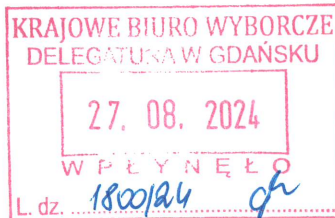 KRAJOWE BIURO WYBORCZE
DELEGATURA W GDAŃSKU
27. 08. 2024
WPŁYNĘŁO
L. dz. 1800/24